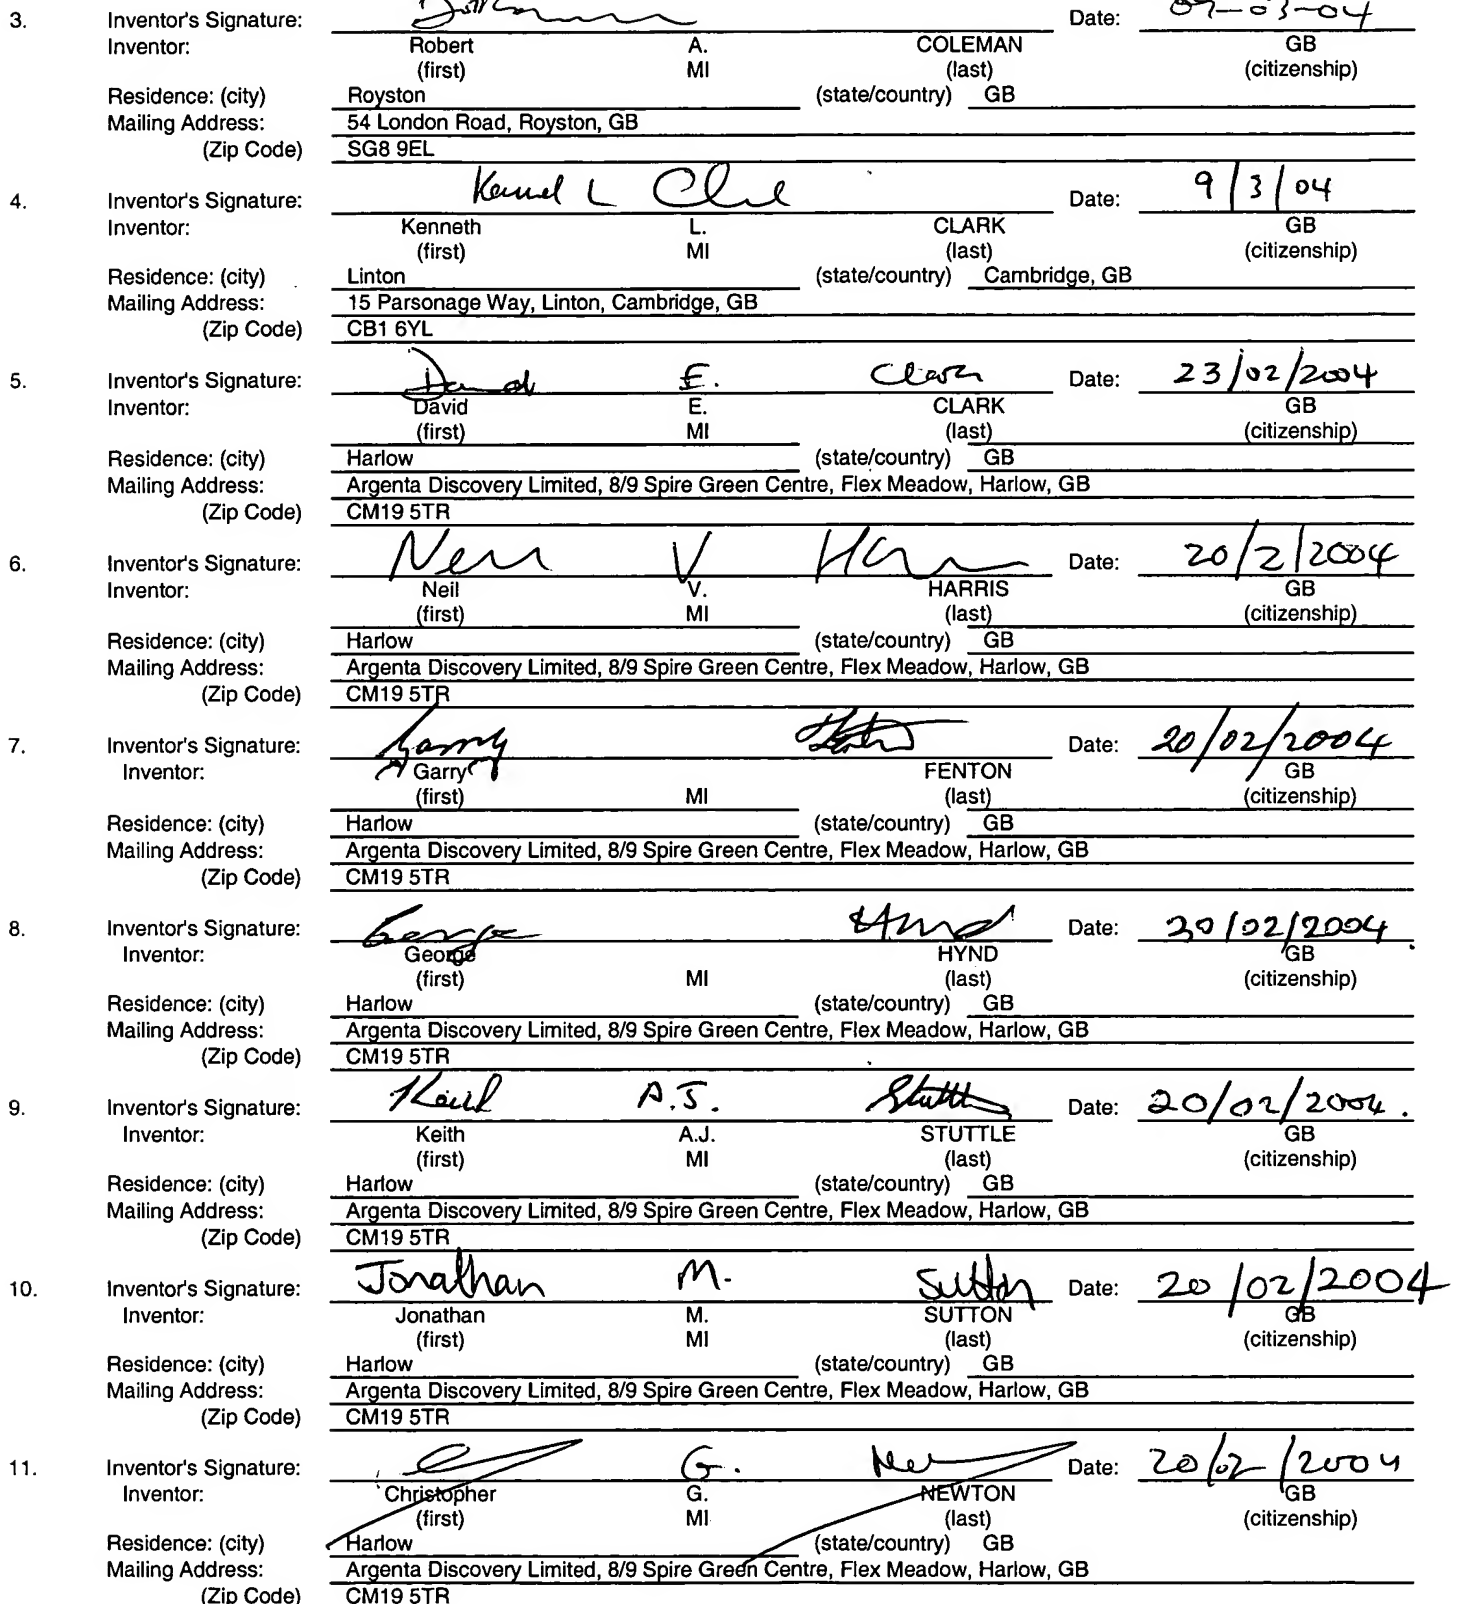 3. Inventor's Signature: Date: 09-03-04
Inventor: Robert A. COLEMAN GB
(first) MI (last) (citizenship)
Residence: (city) Royston (state/country) GB
Mailing Address: 54 London Road, Royston, GB
(Zip Code) SG8 9EL
4. Inventor's Signature: L Date: 9/3/04
Inventor: Kenneth L. CLARK GB
(first) MI (last) (citizenship)
Residence: (city) Linton (state/country) Cambridge, GB
Mailing Address: 15 Parsonage Way, Linton, Cambridge, GB
(Zip Code) CB1 6YL
5. Inventor's Signature: David E. Clark Date: 23/02/2004
Inventor: David E. CLARK GB
(first) MI (last) (citizenship)
Residence: (city) Harlow (state/country) GB
Mailing Address: Argenta Discovery Limited, 8/9 Spire Green Centre, Flex Meadow, Harlow, GB
(Zip Code) CM19 5TR
6. Inventor's Signature: Neil V Date: 20/2/2004
Inventor: Neil V. HARRIS GB
(first) MI (last) (citizenship)
Residence: (city) Harlow (state/country) GB
Mailing Address: Argenta Discovery Limited, 8/9 Spire Green Centre, Flex Meadow, Harlow, GB
(Zip Code) CM19 5TR
7. Inventor's Signature: Garry Date: 20/02/2004
Inventor: Garry FENTON GB
(first) MI (last) (citizenship)
Residence: (city) Harlow (state/country) GB
Mailing Address: Argenta Discovery Limited, 8/9 Spire Green Centre, Flex Meadow, Harlow, GB
(Zip Code) CM19 5TR
8. Inventor's Signature: George Hynd Date: 20/02/2004
Inventor: George HYND GB
(first) MI (last) (citizenship)
Residence: (city) Harlow (state/country) GB
Mailing Address: Argenta Discovery Limited, 8/9 Spire Green Centre, Flex Meadow, Harlow, GB
(Zip Code) CM19 5TR
9. Inventor's Signature: Keith A.J. Stuttle Date: 20/02/2004.
Inventor: Keith A.J. STUTTLE GB
(first) MI (last) (citizenship)
Residence: (city) Harlow (state/country) GB
Mailing Address: Argenta Discovery Limited, 8/9 Spire Green Centre, Flex Meadow, Harlow, GB
(Zip Code) CM19 5TR
10. Inventor's Signature: Jonathan M. Sutton Date: 20/02/2004
Inventor: Jonathan M. SUTTON GB
(first) MI (last) (citizenship)
Residence: (city) Harlow (state/country) GB
Mailing Address: Argenta Discovery Limited, 8/9 Spire Green Centre, Flex Meadow, Harlow, GB
(Zip Code) CM19 5TR
11. Inventor's Signature: G. Date: 20/02/2004
Inventor: Christopher G. NEWTON GB
(first) MI (last) (citizenship)
Residence: (city) Harlow (state/country) GB
Mailing Address: Argenta Discovery Limited, 8/9 Spire Green Centre, Flex Meadow, Harlow, GB
(Zip Code) CM19 5TR